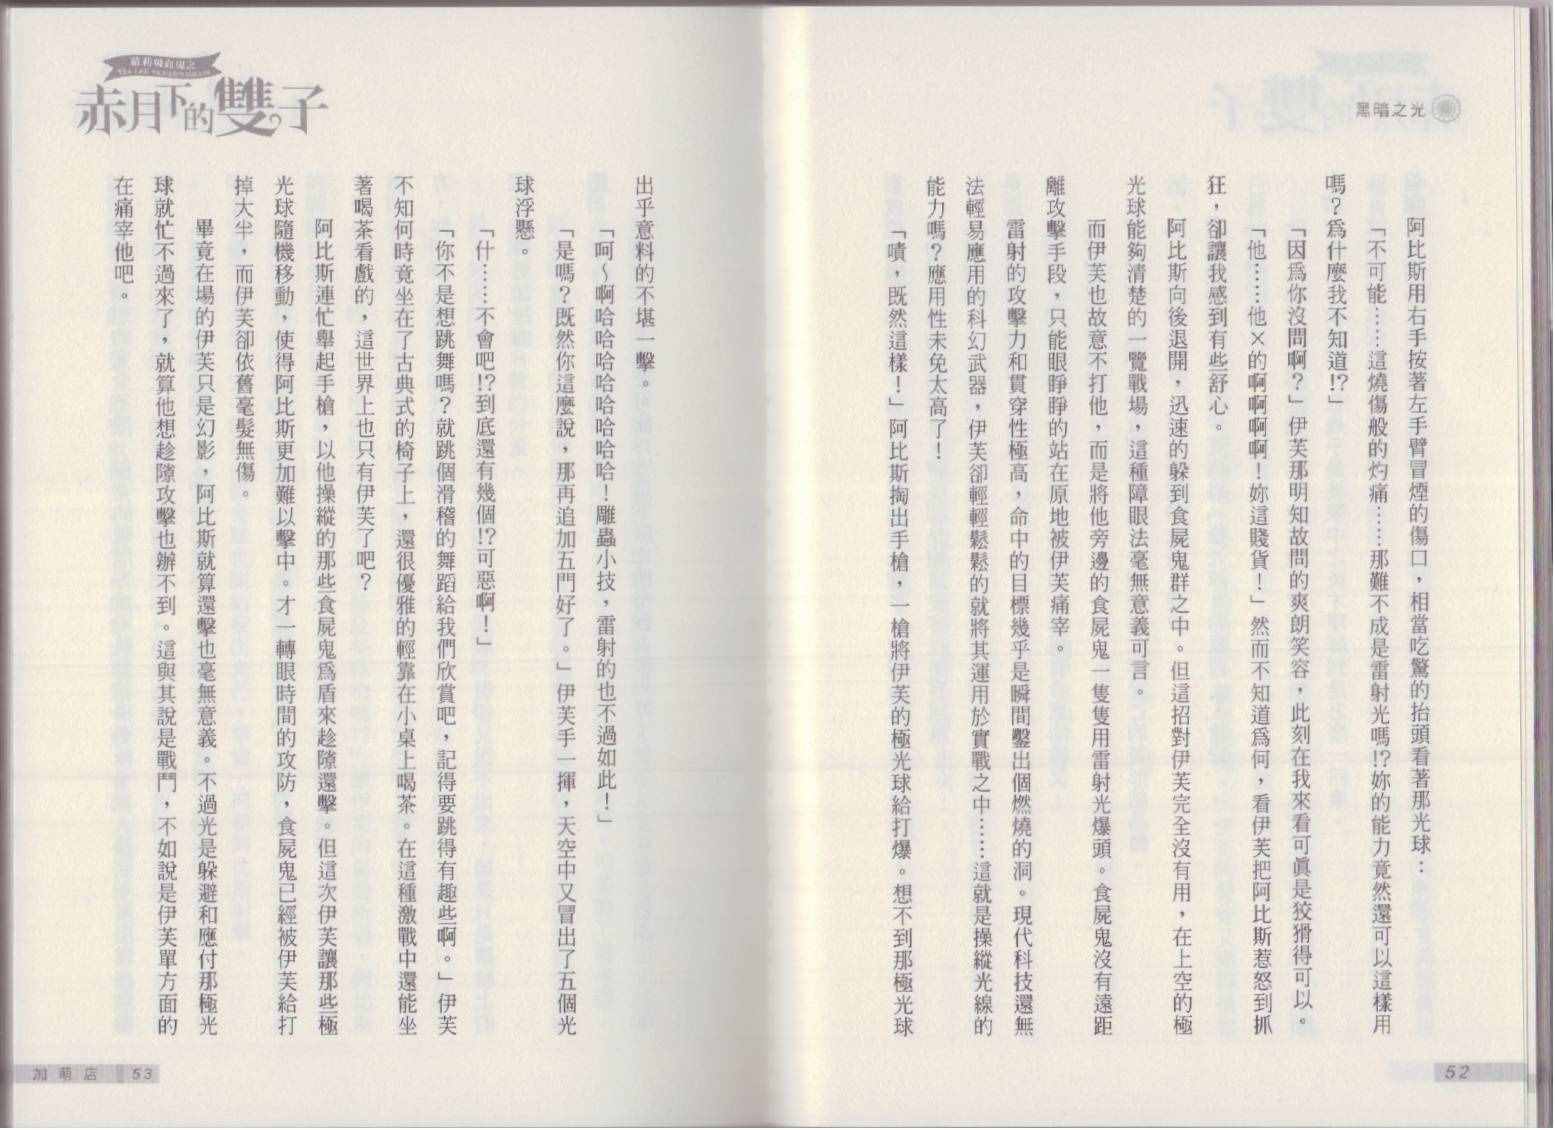 黑暗之光
阿比斯用右手按著左手臂冒煙的傷口，相當吃驚的抬頭看著那光球：
「不可能……這燒傷般的灼痛……那難不成是雷射光嗎!?妳的能力竟然還可以這樣用
嗎？為什麼我不知道!?」
「因為你沒問啊？」伊芙那明知故問的爽朗笑容，此刻在我來看可真是狡猾得可以。
「他……他×的啊啊啊啊！妳這賤貨！」然而不知道為何，看伊芙把阿比斯惹怒到抓
狂，卻讓我感到有些舒心。
阿比斯向後退開，迅速的躲到食屍鬼群之中。但這招對伊芙完全沒有用，在上空的極
光球能夠清楚的一覽戰場，這種障眼法毫無意義可言。
而伊芙也故意不打他，而是將他旁邊的食屍鬼一隻隻用雷射光爆頭。食屍鬼沒有遠距
離攻擊手段，只能眼睜睜的站在原地被伊芙痛宰。
雷射的攻擊力和貫穿性極高，命中的目標幾乎是瞬間鑿出個燃燒的洞。現代科技還無
法輕易應用的科幻武器，伊芙卻輕輕鬆鬆的就將其運用於實戰之中……這就是操縱光線的
能力嗎？應用性未免太高了！
「嘖，既然這樣！」阿比斯掏出手槍，一槍將伊芙的極光球給打爆。想不到那極光球
52
赤月下的雙子
出乎意料的不堪一擊。
「呵～啊哈哈哈哈哈哈哈哈！雕蟲小技，雷射的也不過如此！」
「是嗎？既然你這麼說，那再追加五門好了。」伊芙手一揮，天空中又冒出了五個光
球浮懸。
「什……不會吧!?到底還有幾個!?可惡啊！」
「你不是想跳舞嗎？就跳個滑稽的舞蹈給我們欣賞吧，記得要跳得有趣些啊。」伊芙
不知何時竟坐在了古典式的椅子上，還很優雅的輕靠在小桌上喝茶。在這種激戰中還能坐
著喝茶看戲的，這世界上也只有伊芙了吧？
阿比斯連忙舉起手槍，以他操縱的那些食屍鬼為盾來趁隙還擊。但這次伊芙讓那些極
光球隨機移動，使得阿比斯更加難以擊中。才一轉眼時間的攻防，食屍鬼已經被伊芙給打
掉大半，而伊芙卻依舊毫髮無傷。
畢竟在場的伊芙只是幻影，阿比斯就算還擊也毫無意義。不過光是躲避和應付那極光
球就忙不過來了，就算他想趁隙攻擊也辦不到。這與其說是戰鬥，不如說是伊芙單方面的
在痛宰他吧。
加萌店 53